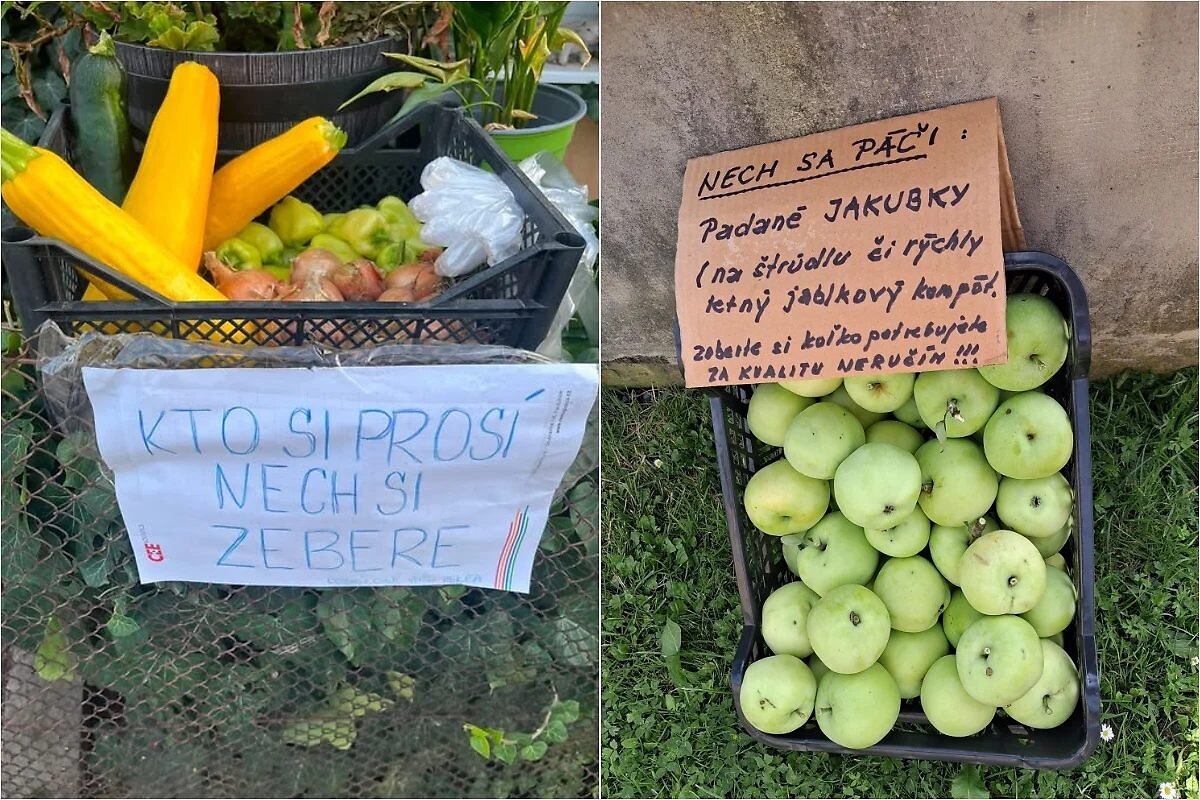 KTO SI PROSÍ
NECH SI
ZEBERE
NECH SA PÁČI :
Padané JAKUBKY
(na štrúdlu či rýchly
letný jablkový kompót.
zoberte si koľko potrebujete
ZA KVALITU NERUČÍM !!!